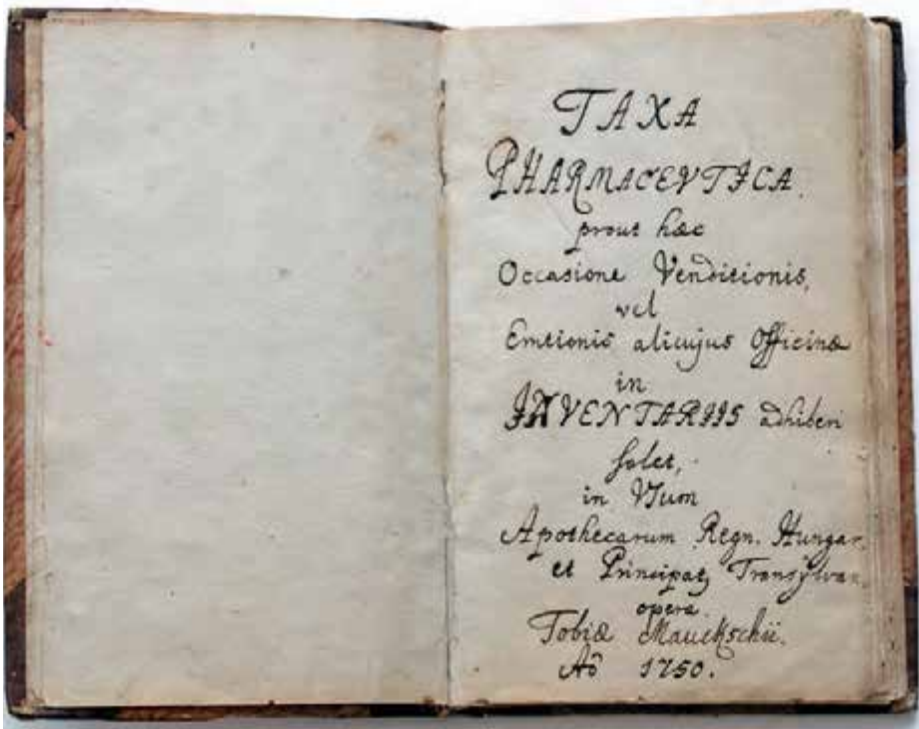 TAXA
PHARMACEVTICA.
prout hæc
Occasione Venditionis,
vel
Emtionis alicujus Officinæ
in
INVENTARIIS adhiberi
solet,
in Vsum
Apothecarum Regn. Hungar.
et Principat. Transylvan.
opera.
Tobiæ Mauckschii.
Aõ 1750.